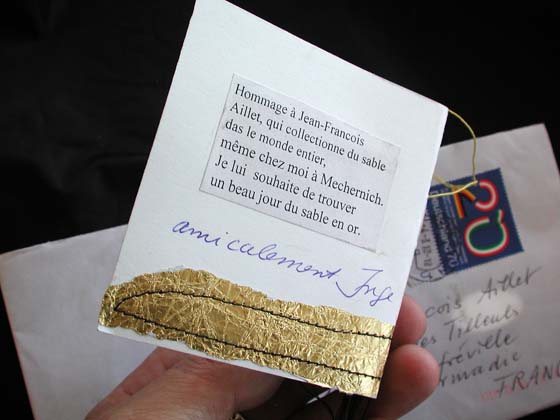 Hommage à Jean-Francois
Aillet, qui collectionne du sable
das le monde entier,
même chez moi à Mechernich.
Je lui souhaite de trouver
un beau jour du sable en or.
amicalement Inge
Aillet
Tilleuls
FRANC